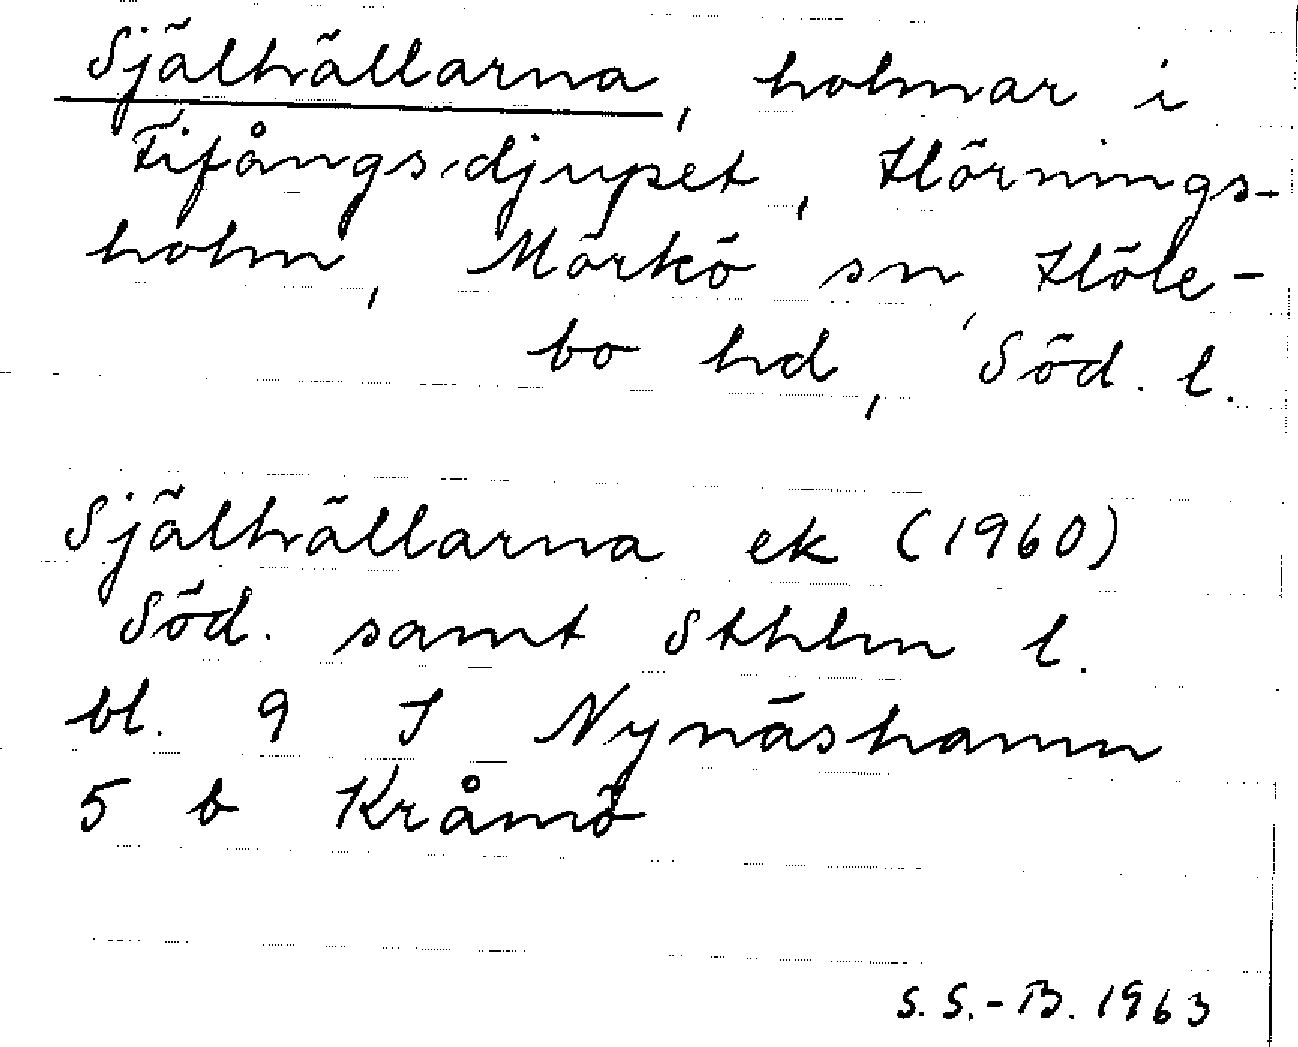 Själhällarna, holmar i
Fifångsdjupet, Hörnings-
holm, Mörkö sn, Höle-
bo hd, Söd. l.
Själhällarna ek (1960)
Söd. samt Sthlm l.
bl. 9 I Nynäshamn
5 b Kråmö
S. S.-B. 1963